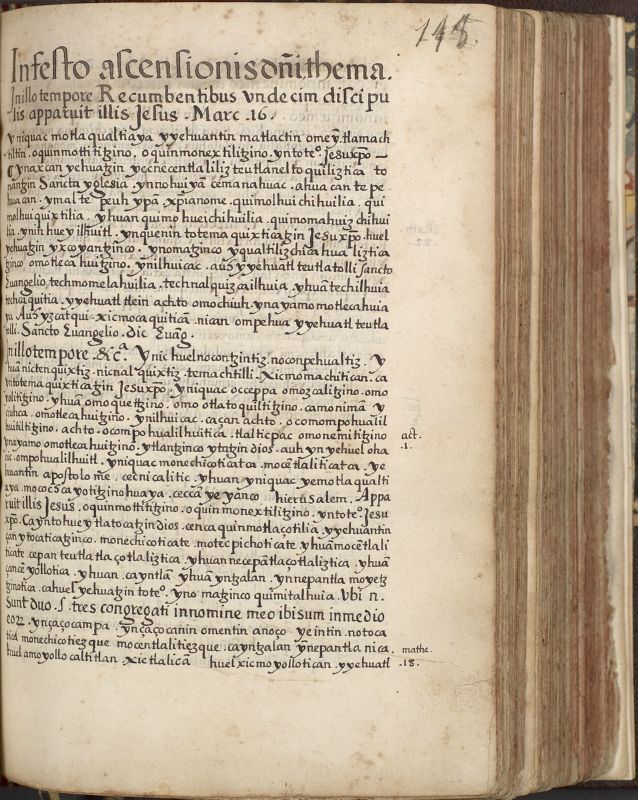 148.
Infesto ascensionis dñi, thema.
Inillo tempore Recumbentibus vndecim discipu
lis apparuit illis Jesus. Marc. 16.
Yniquac motlaqualtiaya yyehuantin matlactin omey. tlamach
tiltin. oquinmottititzino. oquinmonextilitzino. yntoteº. Jesuxpõ —
Çynaxcan yehuatzin yecnecentlaliliz teutlaneltoquiliztica to
nantzin Sancta yglesia. ynnohuiyã cemanahuac. ahuacan tepe
huacan. ymalteº peuh ypã xpianome. quimolhuichihuilia. qui
molhuiquixtilia. yhuan quimohueichihuilia. quimomahuizchihui
lia. ynin huey ilhuitl. ynquenin totemaquixticatzin Jesuxpõ. huel
yehuatzin yxcoyantzinco. ynomatzinco yqualtilizchicahualiztica
tzinco omotlecahuitzino. ynilhuicac. auh yyehuatl teutlatolli sancto
Euangelio, techmomelahuilia. technalquizcailhuia, yhuã techilhuia
techcaquitia. yyehuatl tlein achto omochiuh. ynayamo motlecahuia
ya. Auh yzcatqui. xicmocaquiticã. nican ompehua yyehuatl teutla
tolli. Sancto Euangelio. dic Euãg.
Inillo tempore. &c.ª Ynic huel nocontzintiz. noconpehualtiz. y
huã nictenquixtiz. nicnalquixtiz. temachtilli. Xicmomachitican. ca
yntotemaquixticatzin Jesuxpõ. yniquac occeppa omozcalitzino. omo
yolititzino. yhuã omoquetztzino. omotlatoquiltitzino. camonimã y
niuhca. omotlecahuitzino. ynilhuicac. caçan achto. ocomompohualil
huitiltitzino. achto. ocompohualilhuitica. tlalticpac omonemititzino
ynayamo omotlecahuitzino. ytlantzinco ytatzin dios. auh ynyehuel oha
cic. ompohualilhuitl. yniquac monechicoticatca. mocẽtlaliticatca. ye
huantin apostolome. cecni calitic. yhuan yniquac yemotlaqualti
aya. mococðcayotitzinohuaya. ceccã ye yanco hierusalem. Appa
ruit illis Jesus. oquinmottititzino. oquinmonextilitzino. yntoteº. Jesu
xpõ. Caynto huey tlatocatzin dios. cenca quinmotlaçotilia. yyehuantin
çan ytocaticatzinco. monechicoticate. motecpichoticate. yhuã mocẽtlali
ticate. cepan teutlatlaçotlaliztica. yhuan necepãtlaçotlaliztica. yhuã
çancẽ yollotica. yhuan. cayntlã. yhuã yntzalan. ynnepantla moyetz
tzinotica. cahuel yehuatzin toteº. yno matzinco quimitalhuia. Vbi n.
Sunt duo. l. tres congregati innomine meo ibi sum in medio
eorz. ynçaçocampa. ynçaçocanin omentin anoço yeintin. notoca
tica monechicotiezque mocentlalitiezque. cayntzalan ynepantla nica.
huel amoyollocaltitlan. xictlalicã huel xicmoyollotican. yyehuatl
act.
.1.
mathe.
.18.